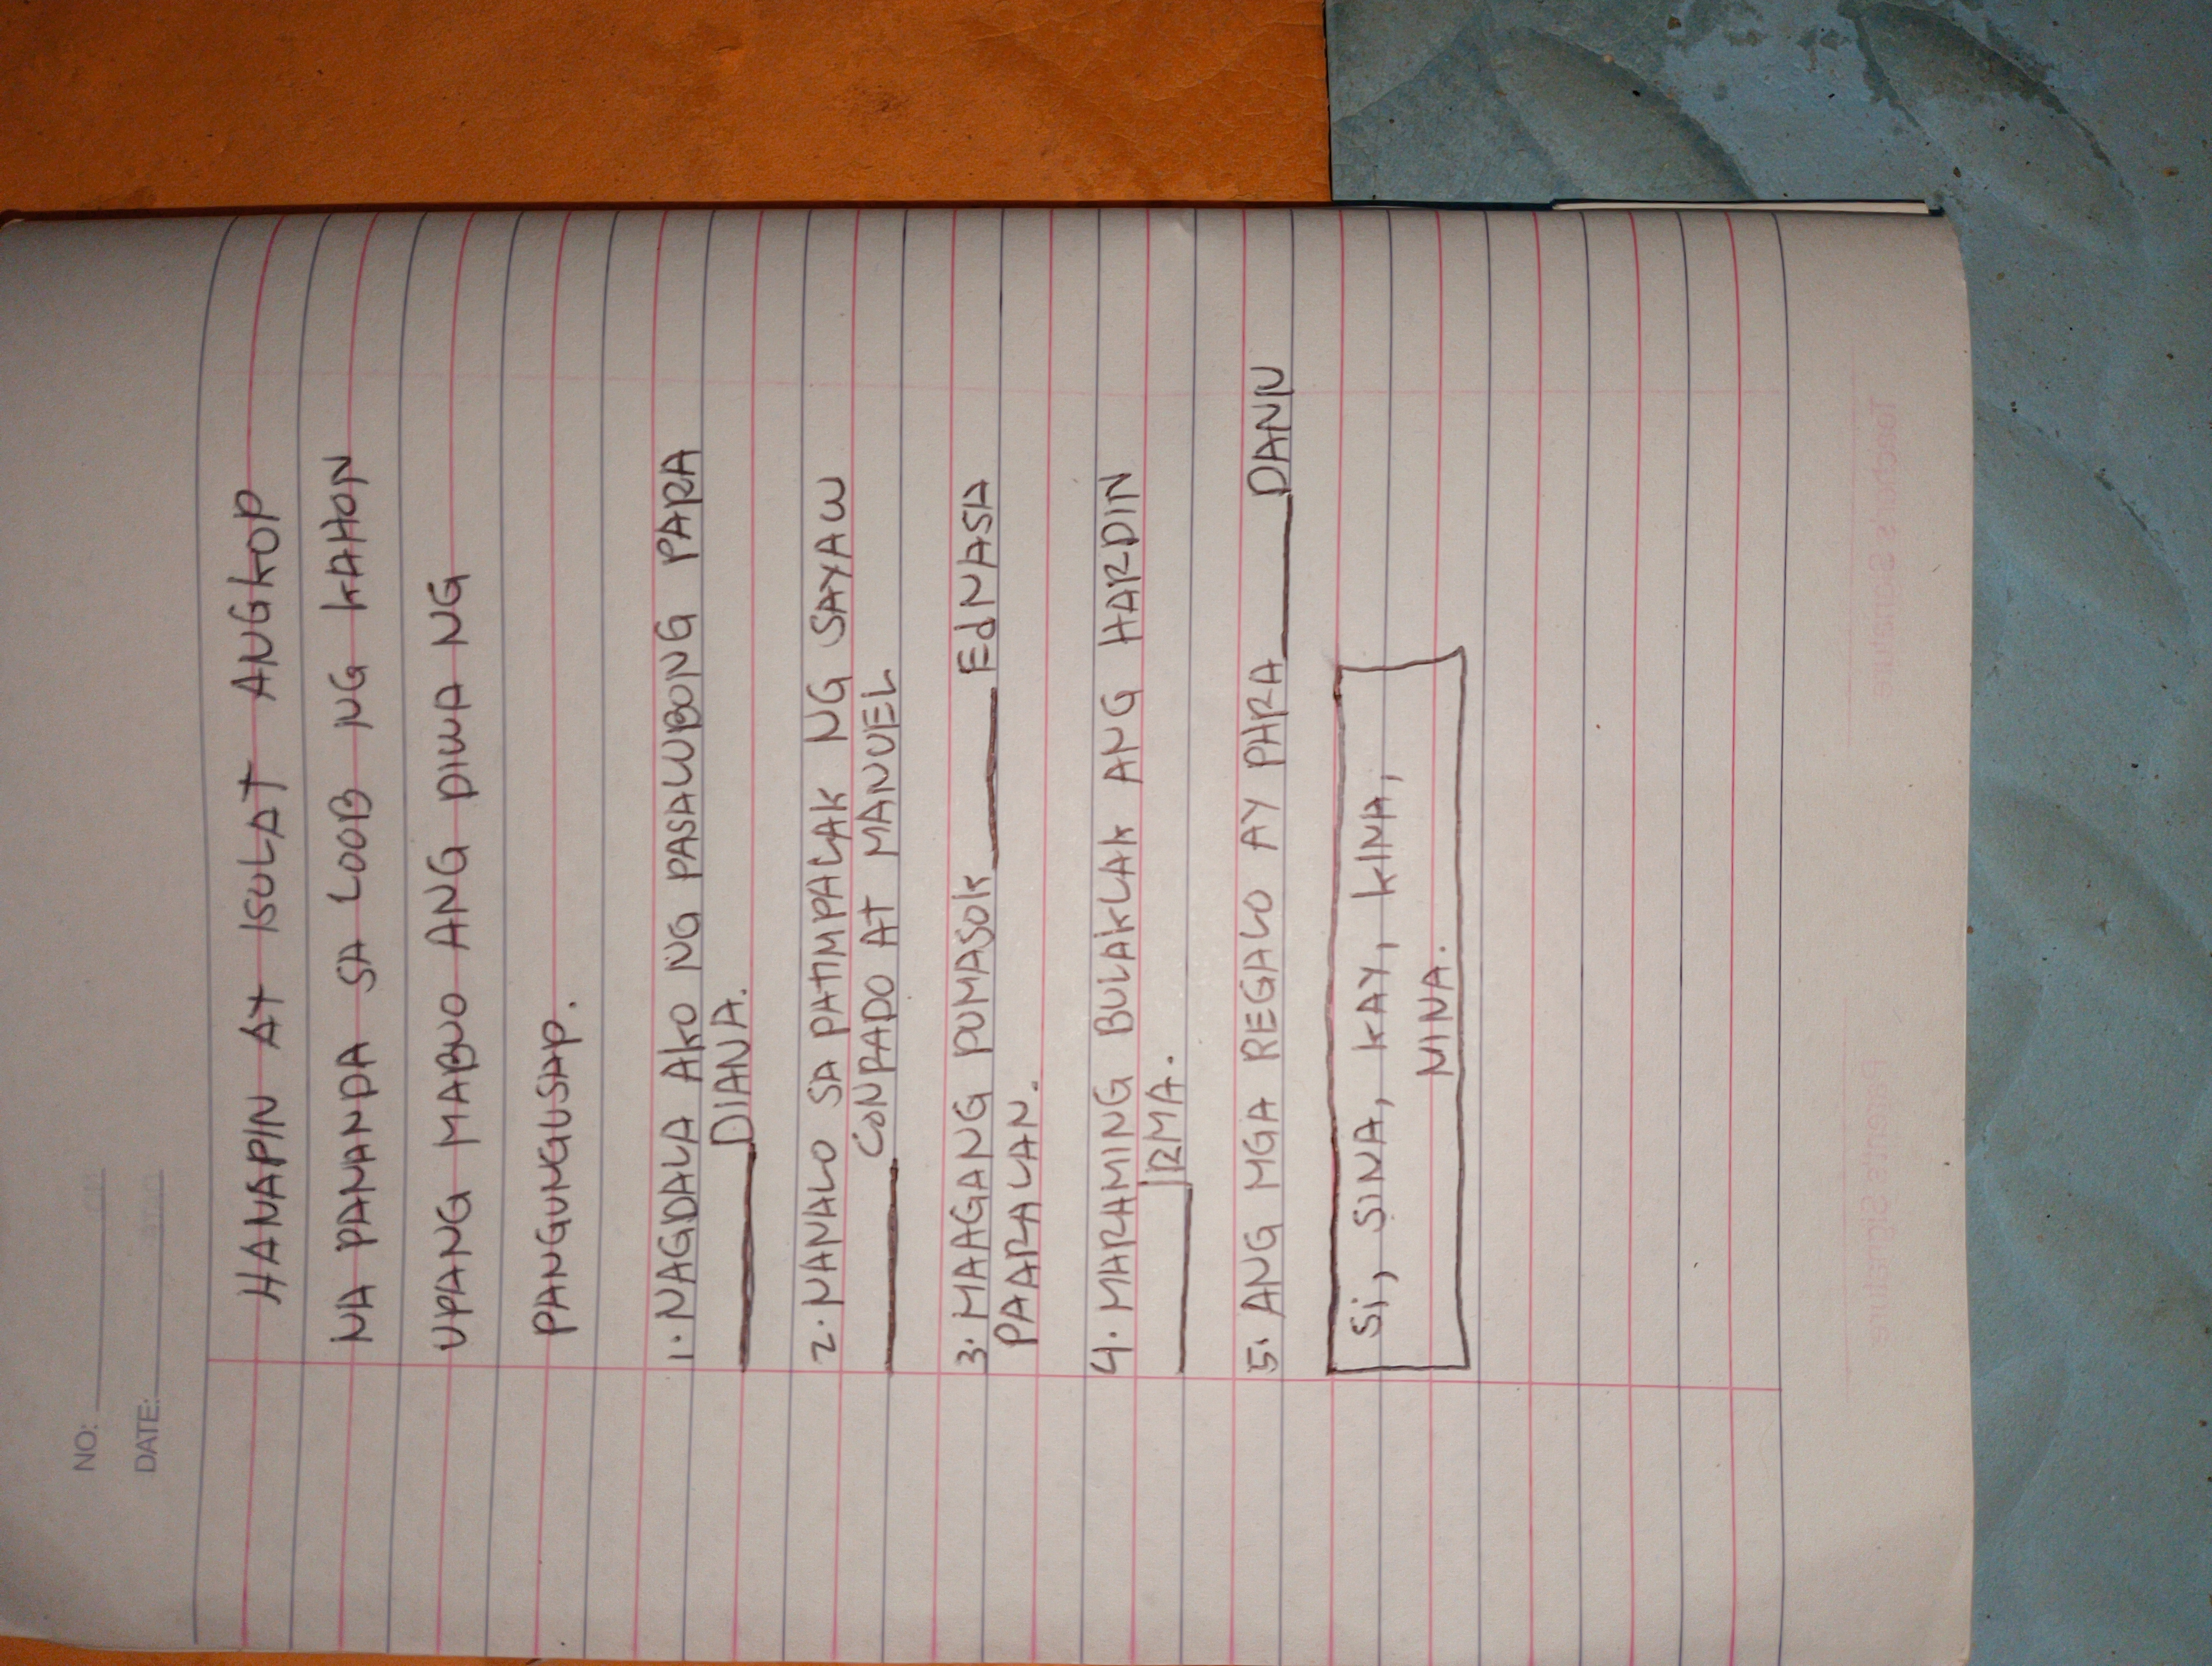 NO:
DATE:
HANAPIN AT ISULAT ANGKOP
NA PANANDA SA LOOB NG KAHON
UPANG MABUO ANG DIWA NG
PANGUNGUSAP.
1. NAGDALA AKO NG PASALUBONG PARA
____ DIANA.
2. NANALO SA PATIMPALAK NG SAYAW
____ CONRADO AT MANUEL
3. MAAGANG PUMASOK ____ EdNASA
PAARALAN.
4. MARAMING BULAKLAK ANG HARDIN
____ IRMA.
5. ANG MGA REGALO AY PARA ____ DANN
Si, SINA, KAY, KINA,
NINA.